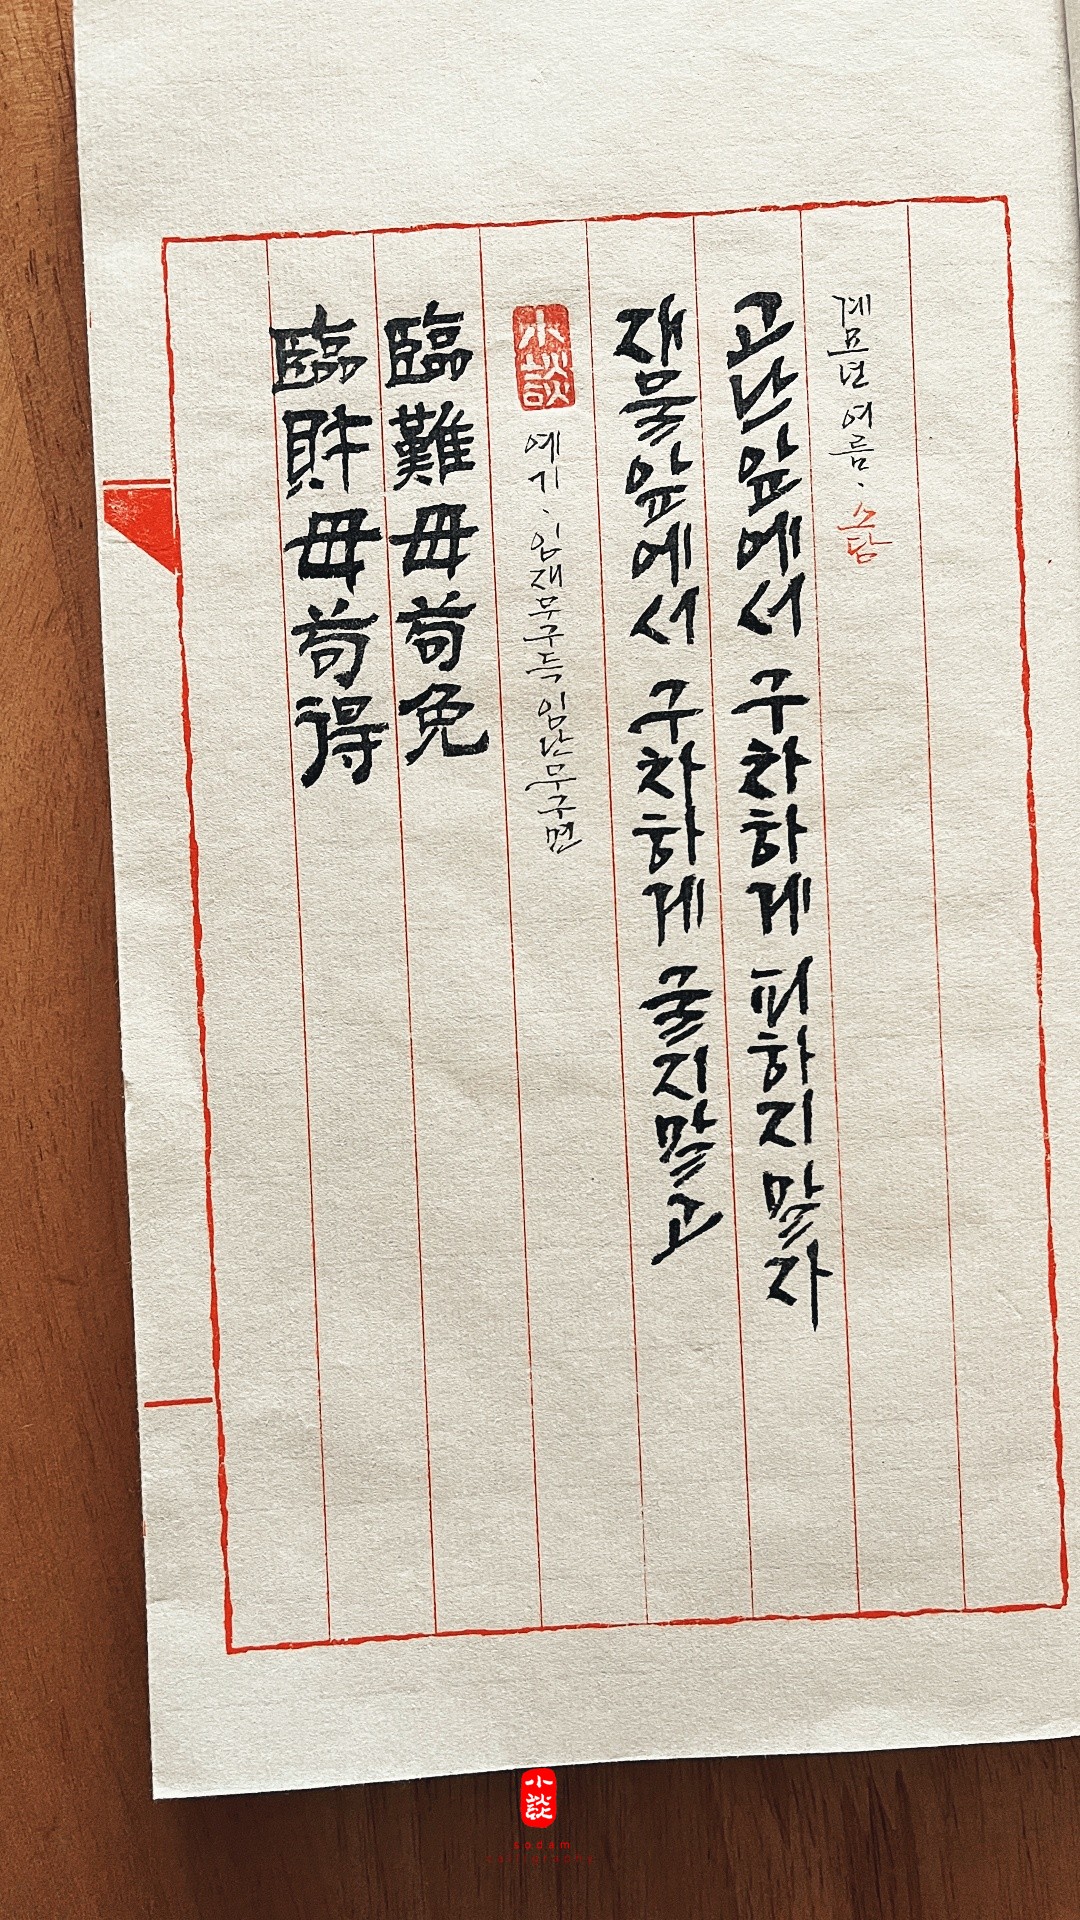 臨財毋苟得
臨難毋苟免
小談
예기·임재무구득임난무구면
재물앞에서 구차하게 굴지말고
고난앞에서 구차하게 피하지말자
계묘년여름·소담
小談
sodam
calligraphy